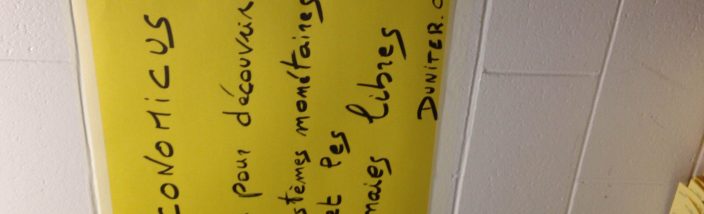 CONOMICUS
pour découvrir
stèmes monétaires
et les
naies libres
DUNITER.